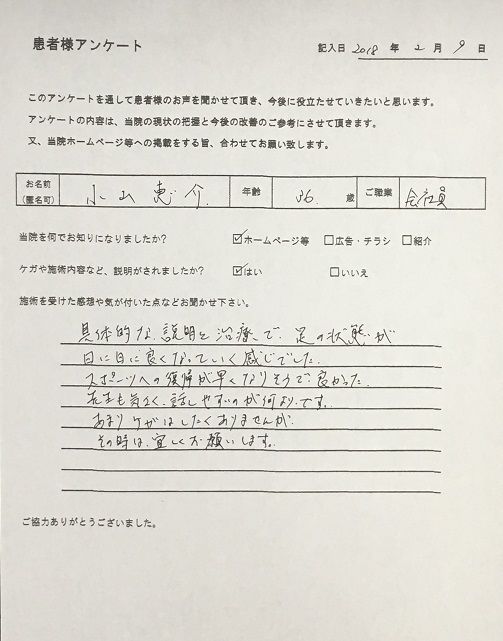 患者様アンケート
記入日 2018 年 2 月 9 日
このアンケートを通して患者様のお声を聞かせて頂き、今後に役立たせていきたいと思います。
アンケートの内容は、当院の現状の把握と今後の改善のご参考にさせて頂きます。
又、当院ホームページ等への掲載をする旨、合わせてお願い致します。
お名前 (匿名可) 小山 恵介 年齢 36 歳 ご職業 会社員
当院を何でお知りになりましたか? ☑ホームページ等 □広告・チラシ □紹介
ケガや施術内容など、説明がされましたか? ☑はい □いいえ
施術を受けた感想や気が付いた点などお聞かせ下さい。
具体的な説明と治療で、足の状態が
日に日に良くなっていく感じでした。
スポーツへの復帰が早くなりそうで良かった。
先生も気さく、話しやすいのが何より です。
あまりケガはしたくありませんが、
その時は、宜しくお願いします。
ご協力ありがとうございました。